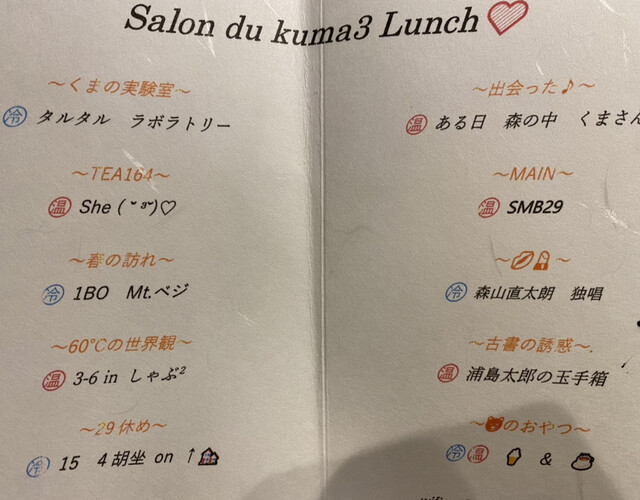 Salon du kuma3 Lunch
～くまの実験室～
冷 タルタル ラボラトリー
～TEA164～
温 She ( ˘ ³˘)♡
～春の訪れ～
冷 1BO Mt.ベジ
～60℃の世界観～
温 3-6 in しゃぶ²
～29休め～
冷 15 4胡坐 on ↑🏠
～出会った♪～
温 ある日 森の中 くまさん
～MAIN～
温 SMB29
～💋💄～
冷 森山直太朗 独唱
～古書の誘惑～
温 浦島太郎の玉手箱
～🐻のおやつ～
冷 温 🍦 & ☕